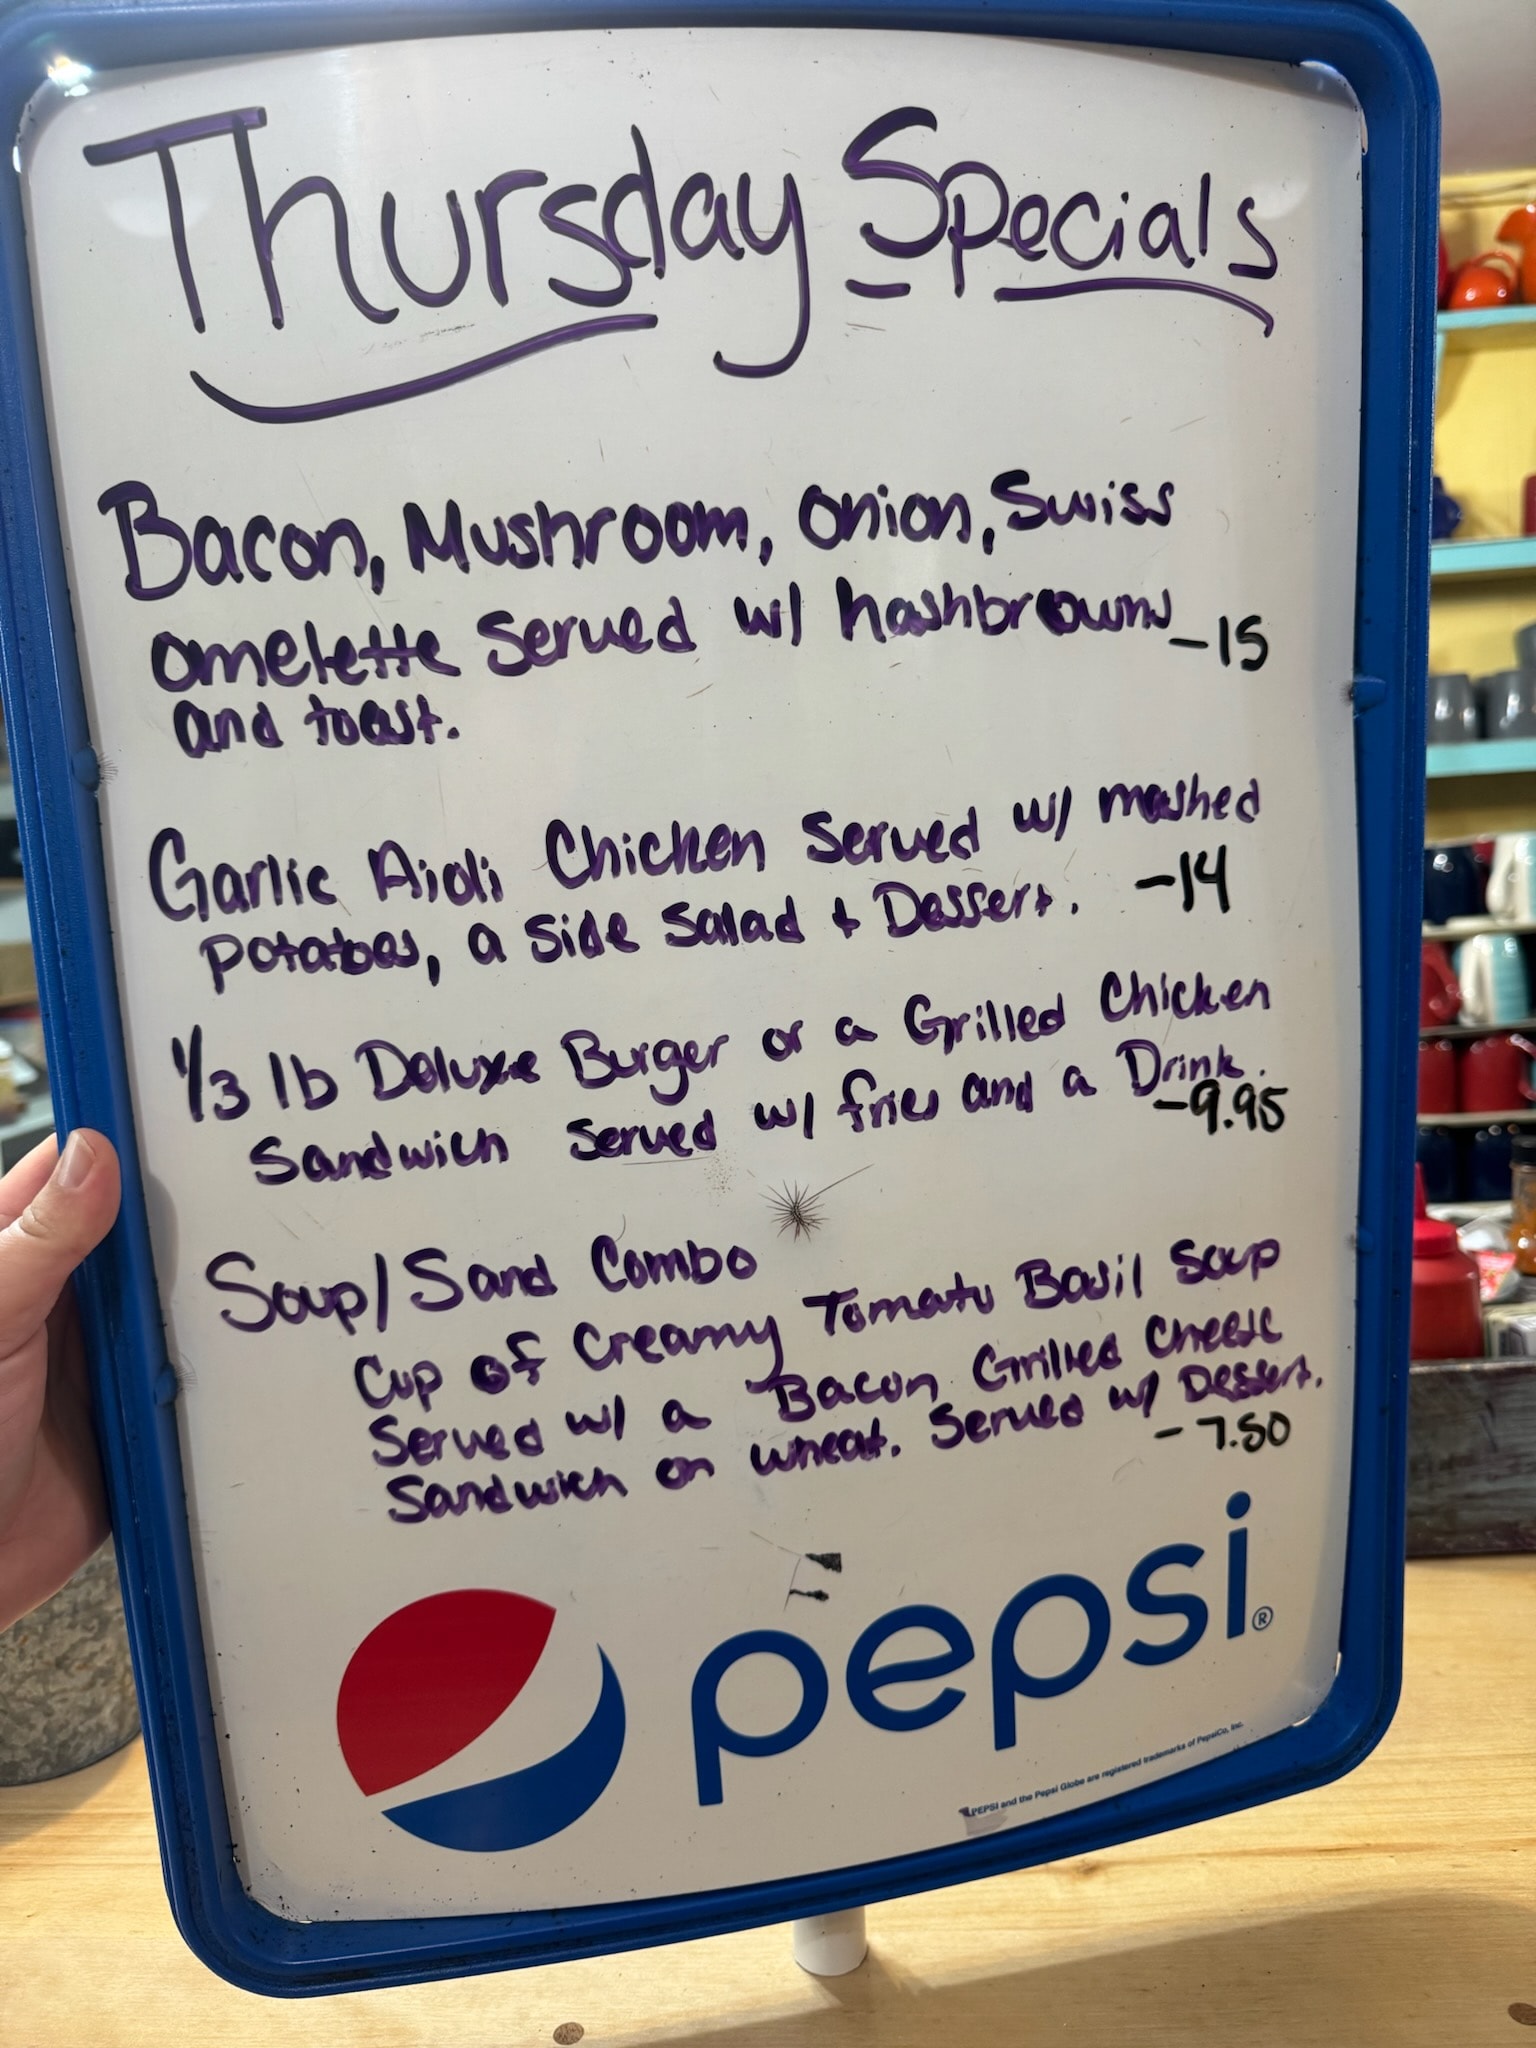 Thursday Specials
Bacon, Mushroom, Onion, Swiss
omelette Served w/ hashbrowns -15
and toast.
Garlic Aioli Chicken Served w/ mashed
potatoes, a side salad + Dessert. -14
1/3 lb Deluxe Burger or a Grilled Chicken
Sandwich Served w/ fries and a Drink.
-9.95
Soup/Sand Combo
Cup of Creamy Tomato Basil Soup
Served w/ a Bacon Grilled Cheese
Sandwich on wheat. Served w/ Dessert.
-7.50
pepsi®
PEPSI and the Pepsi Globe are registered trademarks of PepsiCo, Inc.